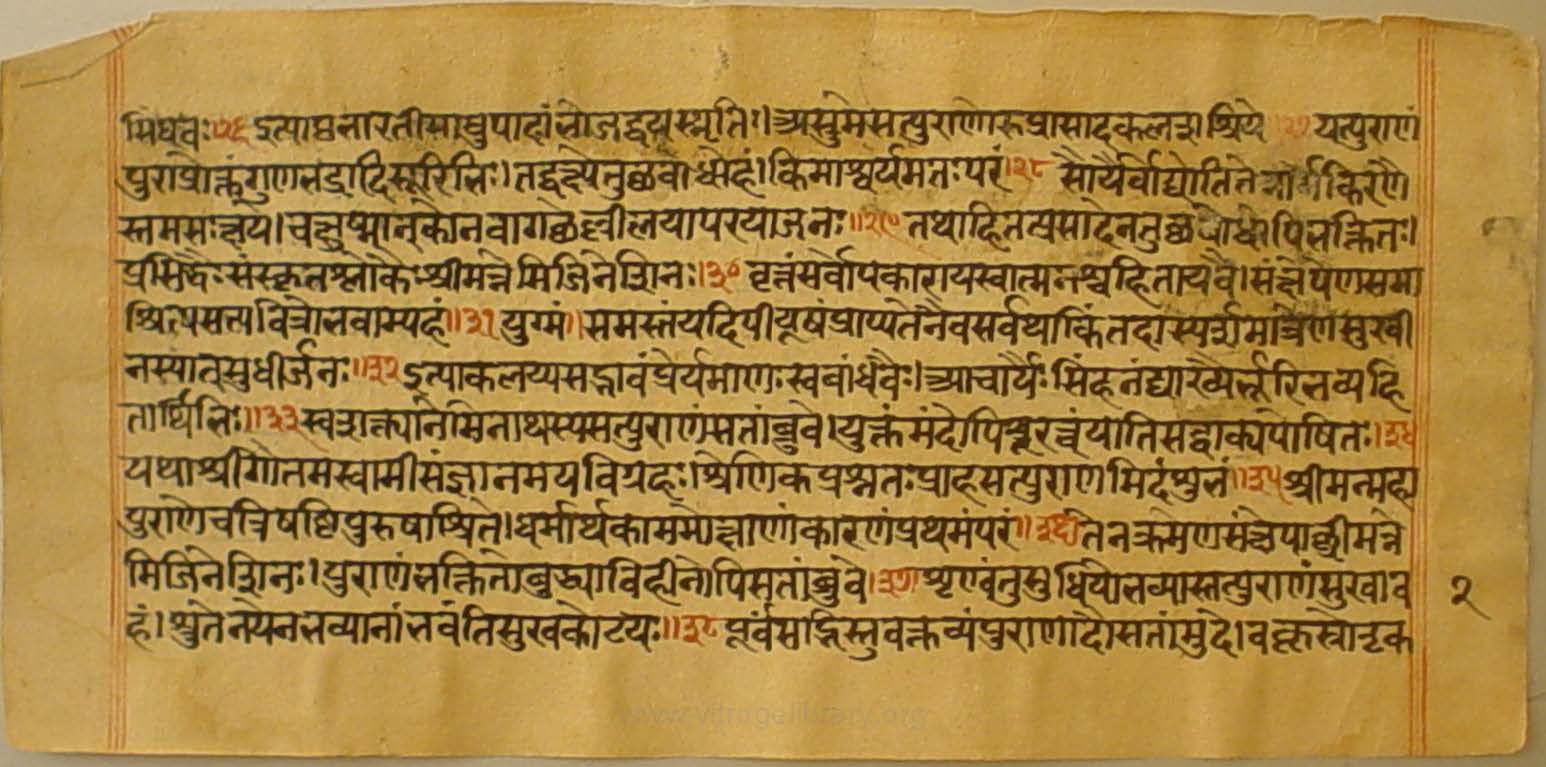 मिंधवः २६ इत्याप्तभारतीसाधुपादांभोजद्वयस्मृतिः।अस्तुमेसत्पुराणेरुप्रासादकलशश्रिये २७ यत्पुराणं
पुराप्रोक्तंगुणभद्रादिसूरिभिः।तद्वक्ष्येतुछबोधोहं।किमाश्चर्यमतःपरं।२८ सौर्यैर्वाद्योतिते मार्गे किरणै
स्तमसःक्षये।चक्षुष्मान्कोनवागछेल्लीलयापरयाजनः॥२९ तथाहितत्प्रसादेनतुछबोधोपिभक्तितः।
प्रसिद्धैःसंस्कृतश्लोकैःश्रीमन्नेमिजिनेशिनः।३० वृत्तंसर्वोपकारायस्वात्मनश्चहितायवै।संक्षेपेणसमा
श्रित्यसत्पवित्रोभवाम्यहं॥३१ युग्मं॥समस्तंयदिपीयूषंप्राप्यतेनैवसर्वथाकिंतदास्पर्शमात्रेणसुखी
नस्यात्सुधीर्जनः॥३२ इत्याकलय्यसद्भावंप्रेर्यमाणःस्वबांधवैः।आचार्यैःसिंहनंद्याख्यैर्भूरिभव्यहि
तार्थिभिः॥३३ स्वशक्त्यानेमिनाथस्यसत्पुराणंसतांब्रुवे।युक्तंमंदोपिशूरत्वंयातिसद्वाक्यपोषितः।३४
यथाश्रीगौतमस्वामीसंज्ञानमयविग्रहः।श्रेणिकप्रश्नतःप्राहसत्पुराणमिदंशुभं॥३५ श्रीमन्महा
पुराणेचत्रिषष्टिपुरुषाश्रिते।धर्मार्थकाममोक्षाणांकारणंप्रथमंपरं॥३६ तेनक्रमेणसंक्षेपाछ्रीमन्ने
मिजिनेशिनः।पुराणंभक्तितोबुद्ध्याविहीनोपिसतांब्रुवे।३७ शृण्वंतुसुधियोभव्यास्तत्पुराणंसुखाव
हं।श्रुतेनयेनभव्यानांभवंतिसुखकोटयः॥३८ पूर्वंसद्भिस्तुवक्तव्यंपुराणादौसतांमुदे।वक्तृस्रोतृक
२
www.vitragelibrary.org